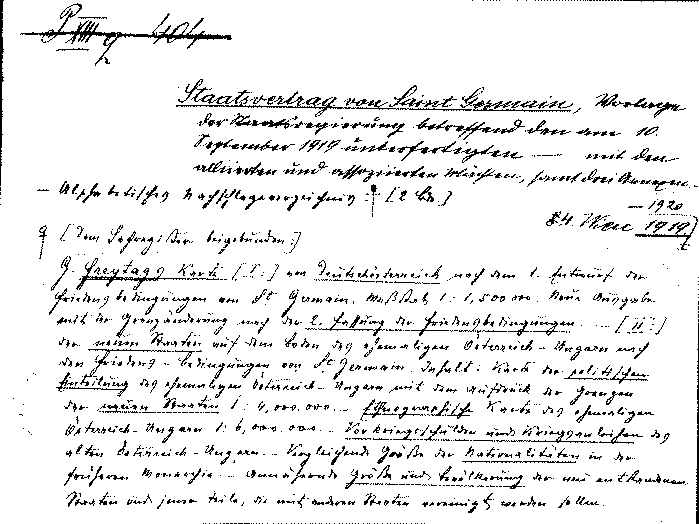 P XIII 2 404
Staatsvertrag von Saint Germain, Vorlage
der Staatsregierung betreffend den am 10.
September 1919 unterfertigten — mit den
alliierten und assoziierten Mächten, samt drei Annexen. —
— Alphabetisches Nachschlageverzeichnis. [2 Bde.]
— 1920
84. Wien 1919
[Dem Sachregister beigebunden:]
G. Freytags Karte [I.] von Deutschösterreich nach dem 1. Entwurf der
Friedensbedingungen von St Germain. Maßstab 1:1,500.000. Neue Ausgabe
mit der Grenzänderung nach der 2. Fassung der Friedensbedingungen. — [II.]
der neuen Staaten auf dem Boden des ehemaligen Österreich-Ungarn nach
den Friedens-bedingungen von St Germain. Inhalt: Karte der politischen
Einteilung des ehemaligen Österreich-Ungarn mit dem Aufdruck der Grenzen
der neuen Staaten 1:4,000.000. — Ethnographische Karte des ehemaligen
Österreich-Ungarn 1:6,000.000. — Vorkriegsschulden und Kriegsanleihen des
alten Österreich-Ungarn. — Vergleichende Größe der Nationalitäten in der
früheren Monarchie. — Annähernde Größe und Bevölkerung der neu entstandenen
Staaten und jener Teile, die mit anderen Staaten vereinigt werden sollen.